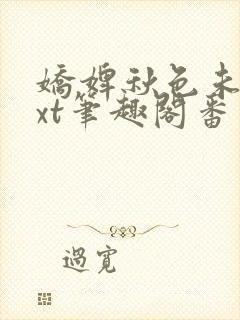 嬌婢秋色未
xt筆趣閣番
過寬